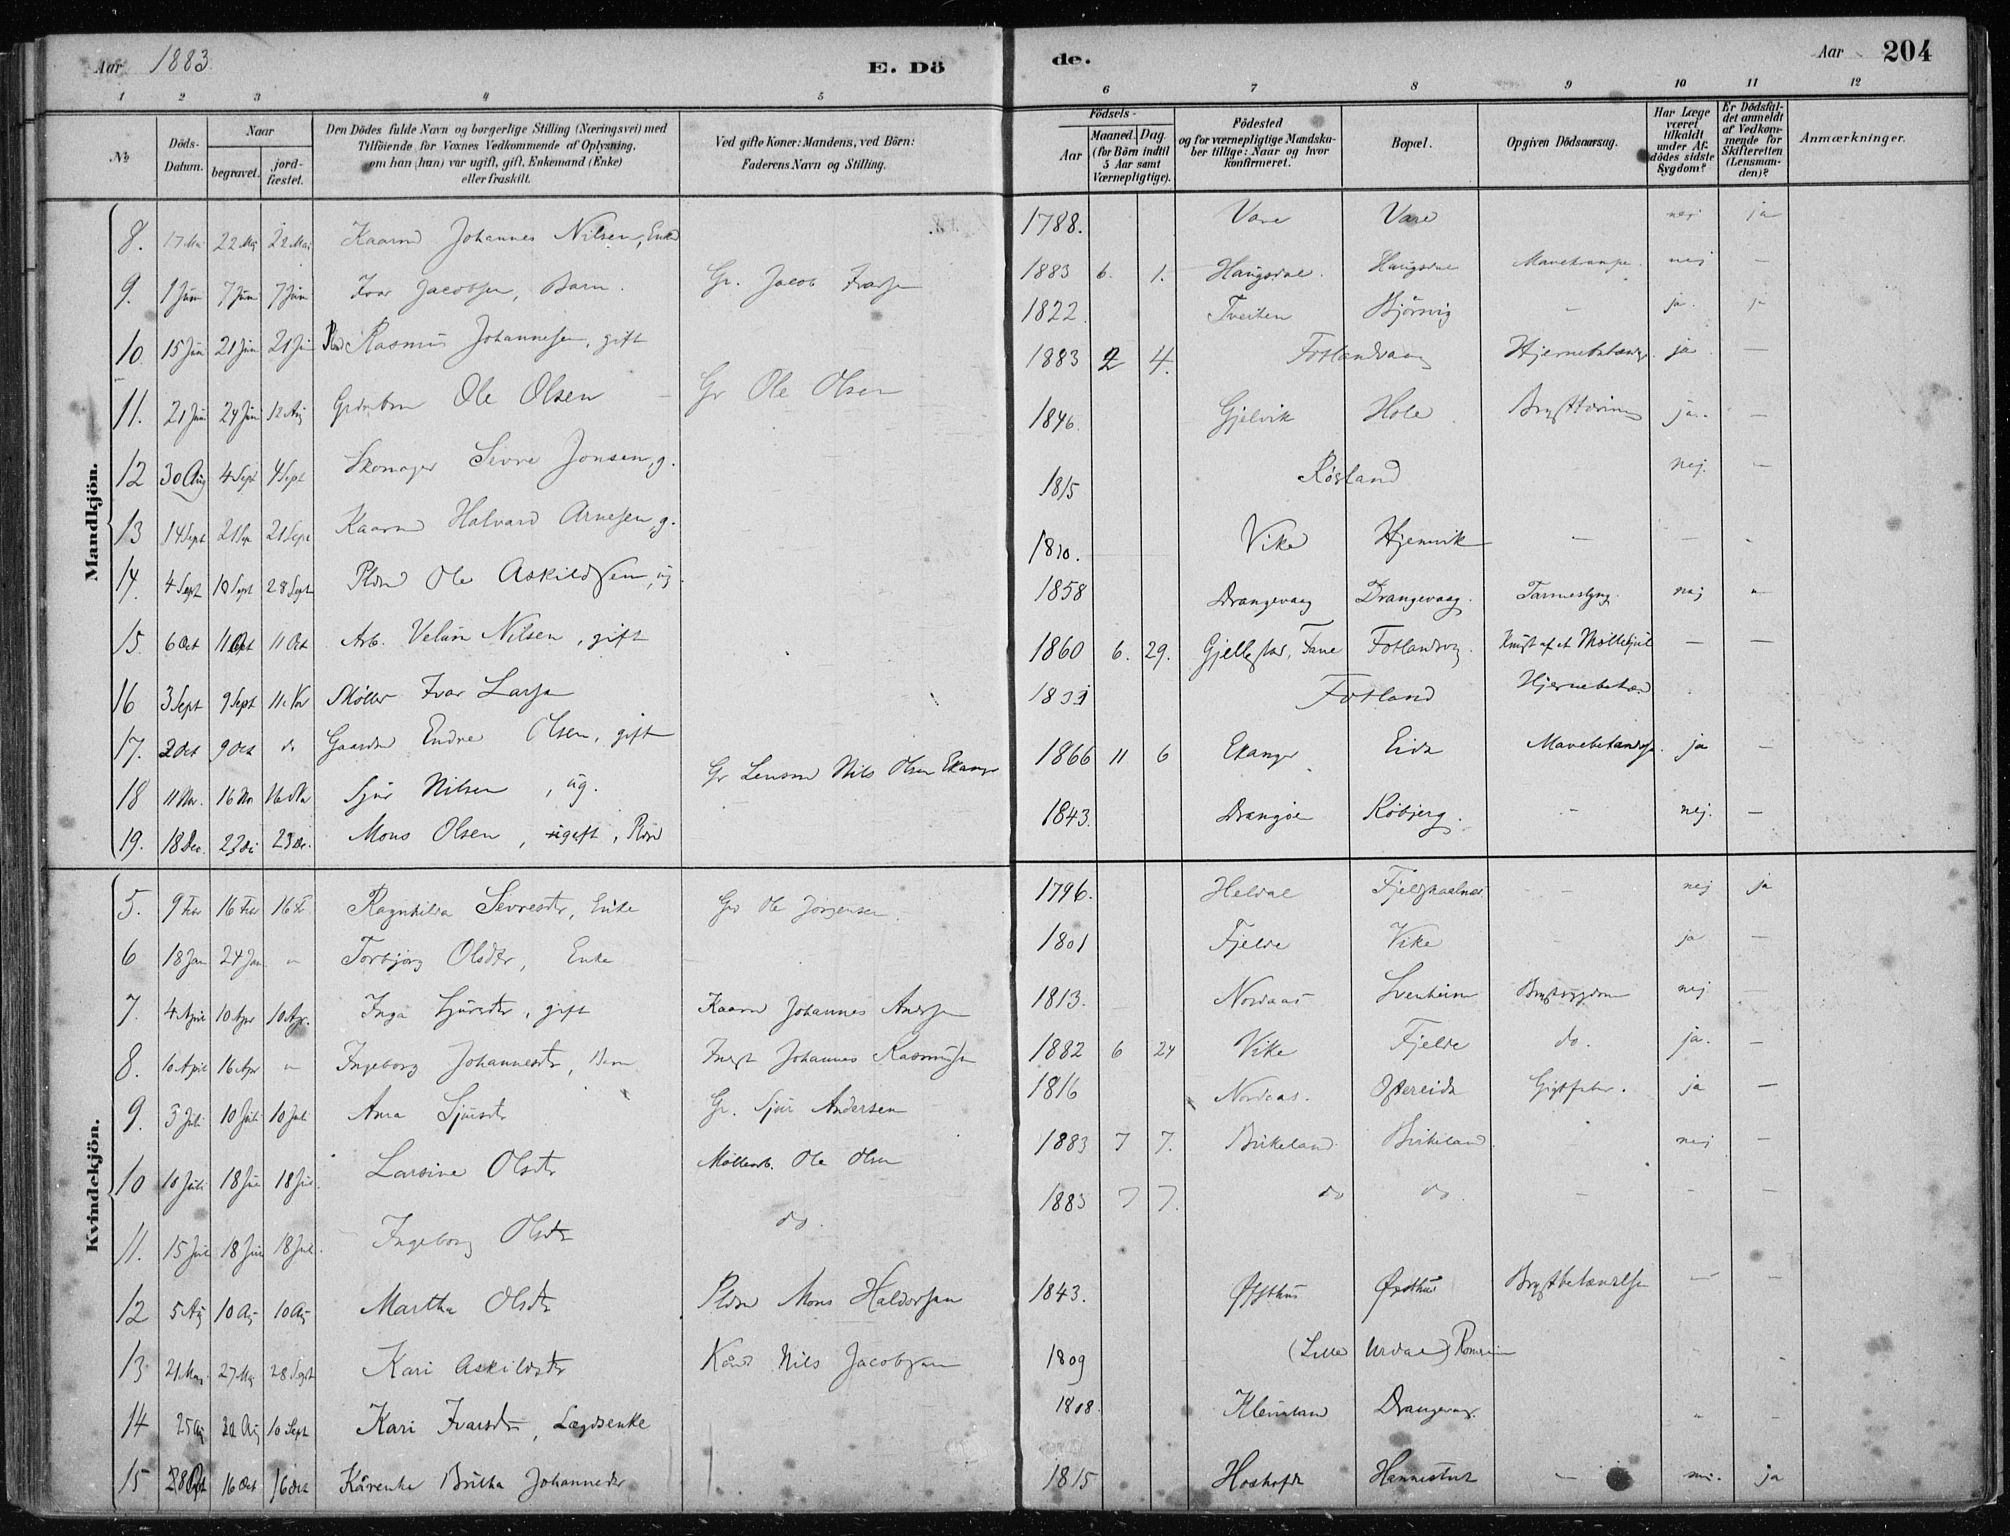 Aar 1883 E. Dö de. Aar 204
1 2 3 4 5 6 7 8 9 10 11 12
No Döds-Datum. Naar begravet. jord-fæstet. Den Dödes fulde Navn og borgerlige Stilling (Næringsvei) med Tilföiende for Voxnes Vedkommende af Oplysning, om han (hun) var ugift, gift, Enkemand (Enke) eller fraskilt. Ved gifte Koner: Mandens, ved Börn: Faderens Navn og Stilling. Födsels- Aar Maaned. Dag. (for Börn indtil 5 Aar samt Værnepligtige). Födested og for værnepligtige Mandskaber tillige: Naar og hvor konfirmeret. Bopæl. Opgiven Dödsaarsag. Har Læge været tilkaldt under Afdödes sidste Sygdom? Er Dödsfaldet anmeldt af Vedkommende for Skifteretten (Lensmanden)? Anmærkninger.
Mandkjön.
8. 17 Mai 22 Mai 22 Mai Kaarmd Johannes Nilsen, Enkd 1788. Vare Vare nej ja
9. 1 Juni 7 Juni 7 Juni Ivar Jacobsen, Barn. Gr. Jacob Ivarsen 1883 6. 1. Haugsdal. Haugsdal Mavekrampe. nej —
10 15 Juni 21 Juni 21 Juni Plmd Rasmus Johannesen, gift 1822 Tveiten Bjørsvig - ja. ja
11. 21 Juni 24 Juni 12 Aug Grdmbrn Ole Olsen Gr Ole Olsen 1883 2 4. Fotlandvaag Hjernebetænd. ja —
12 30 Aug 4 Sept 4 Sept Skomager Sivre Jonsen, g. 1846. Gjelvik Hole Brysttæring ja. —
13 14 Sept 21 Sep 21 Sept Kaarmd Halvard Arnesen, g. 1815 Røsland nej. —
14. 4 Sept 10 Sept 28 Sept Plmd Ole Askildsen, ug 1810. Vike Hjemvik — — -
15 6 Oct 11 Oct 11 Oct Arb. Velum Nilsen, gift 1858 Drangevaag Drangevaag. Tarmeslyng. nej —
16 3 Sept 9 Sept 11. Nov Møller Ivar Larsen 1860 6. 29. Gjellestad, Fane Fotlandvag. Knust af et Møllehjul — —
17. 2 Oct 9 Oct do Gaardm Endre Olsen, gift 1833 Fotland Hjernebetæn.
18 11 Nov. 16 Nov 16 Nov Sjur Nilsen, ug. Gr Lensmd Nils Olsen Ekanger 1866 11 6 Ekanger Eide Mavebetændelse. ja —
19. 18 Dec. 23 De 23 De. Mons Olsen, ugift, Plmd 1843. Drangøe Købjerg. - nej. —
Kvindekjön.
5. 9 Febr 16 Febr 16 Fe Ragnhilda Sevresdtr, Enke Grd Ole Jørgensen. 1796. Heldal Fjeldskaalnes - nej ja
6 18 Jan 24 Jan. " Torbjørg Olsdtr, Enke 1801 Fjelde Vike ja —
7. 4 April 10 Apr 10 Apr. Inga Sjursdtr, gift Kaarmd Johannes Andersen 1813. Nordaas Svenheim Brystsygdom nej —
8. 10 April 16 Apr " Ingeborg Johannesdtr, Barn Inderst Johannes Rasmussen 1882 6 24 Vike Fjelde do. ja. —
9. 3 Juli 10 Juli 10 Juli Anna Sjursdtr Gr. Sjur Andersen 1816 Nordaas. Ostereide Gigtfeber. ja —
10 10 Juli 18 Jul 18 Jul. Larsine Olsdtr Møllearb. Ole Olsen 1883 7 7. Birkeland Birkeland. nej —
11. 15 Jul 18 Jul 18 Jul. Ingeborg Olsdtr do. 1883 7 7. do do. — — —
12 5 Aug 10 Aug 10 Aug Martha Olsdtr Plmd Mons Haldorsen 1843. Øfsthus Øvsthus Brystbetændelse — —
13 21 Mai 27 Mai 28 Sept Kari Askildsdtr Kårmd Nils Jacobsen 1809 (Lille Urdal) Romeim " -
14 25 Aug 30 Aug 10 Sept Kari Ivarsdtr, Lægdsenke 1808. Kleivland Drangevag. " -
15 28 Oct 16 Oct 16 Oct Kårenke Britha Johannesdr 1815 Hannestvet — ja